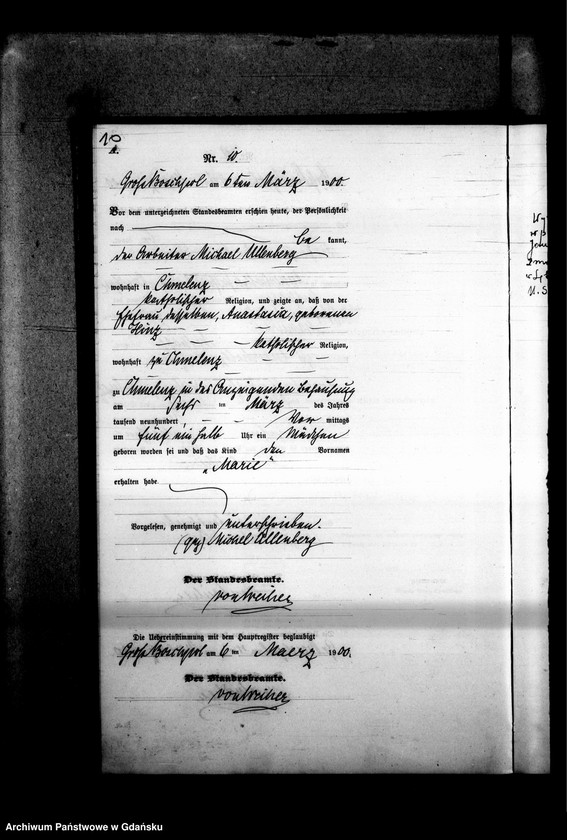 10
A.
Nr. 10.
Groß Boschpol am 6ten März 1900.
Vor dem unterzeichneten Standesbeamten erschien heute, der Persönlichkeit
nach
be kannt,
der Arbeiter Michael Ullenberg
wohnhaft in Chmelenz
katholischer Religion, und zeigte an, daß von der
Ehefrau desselben, Anastasia, geborenen
Hinz
katholischer Religion,
wohnhaft zu Chmelenz
zu Chmelenz, in des Anzeigenden Behausung
am sechs ten März des Jahres
tausend neunhundert Vor mittags
um fünf ein halb Uhr ein Mädchen
geboren worden sei und daß das Kind den Vornamen
„Marie“
erhalten habe
Vorgelesen, genehmigt und unterschrieben.
(gez) Michael Ullenberg
Der Standesbeamte.
von Weiher
Die Uebereinstimmung mit dem Hauptregister beglaubigt
Groß Boschpol am 6 ten Maerz 1900.
Der Standesbeamte.
von Weiher
Archiwum Państwowe w Gdańsku